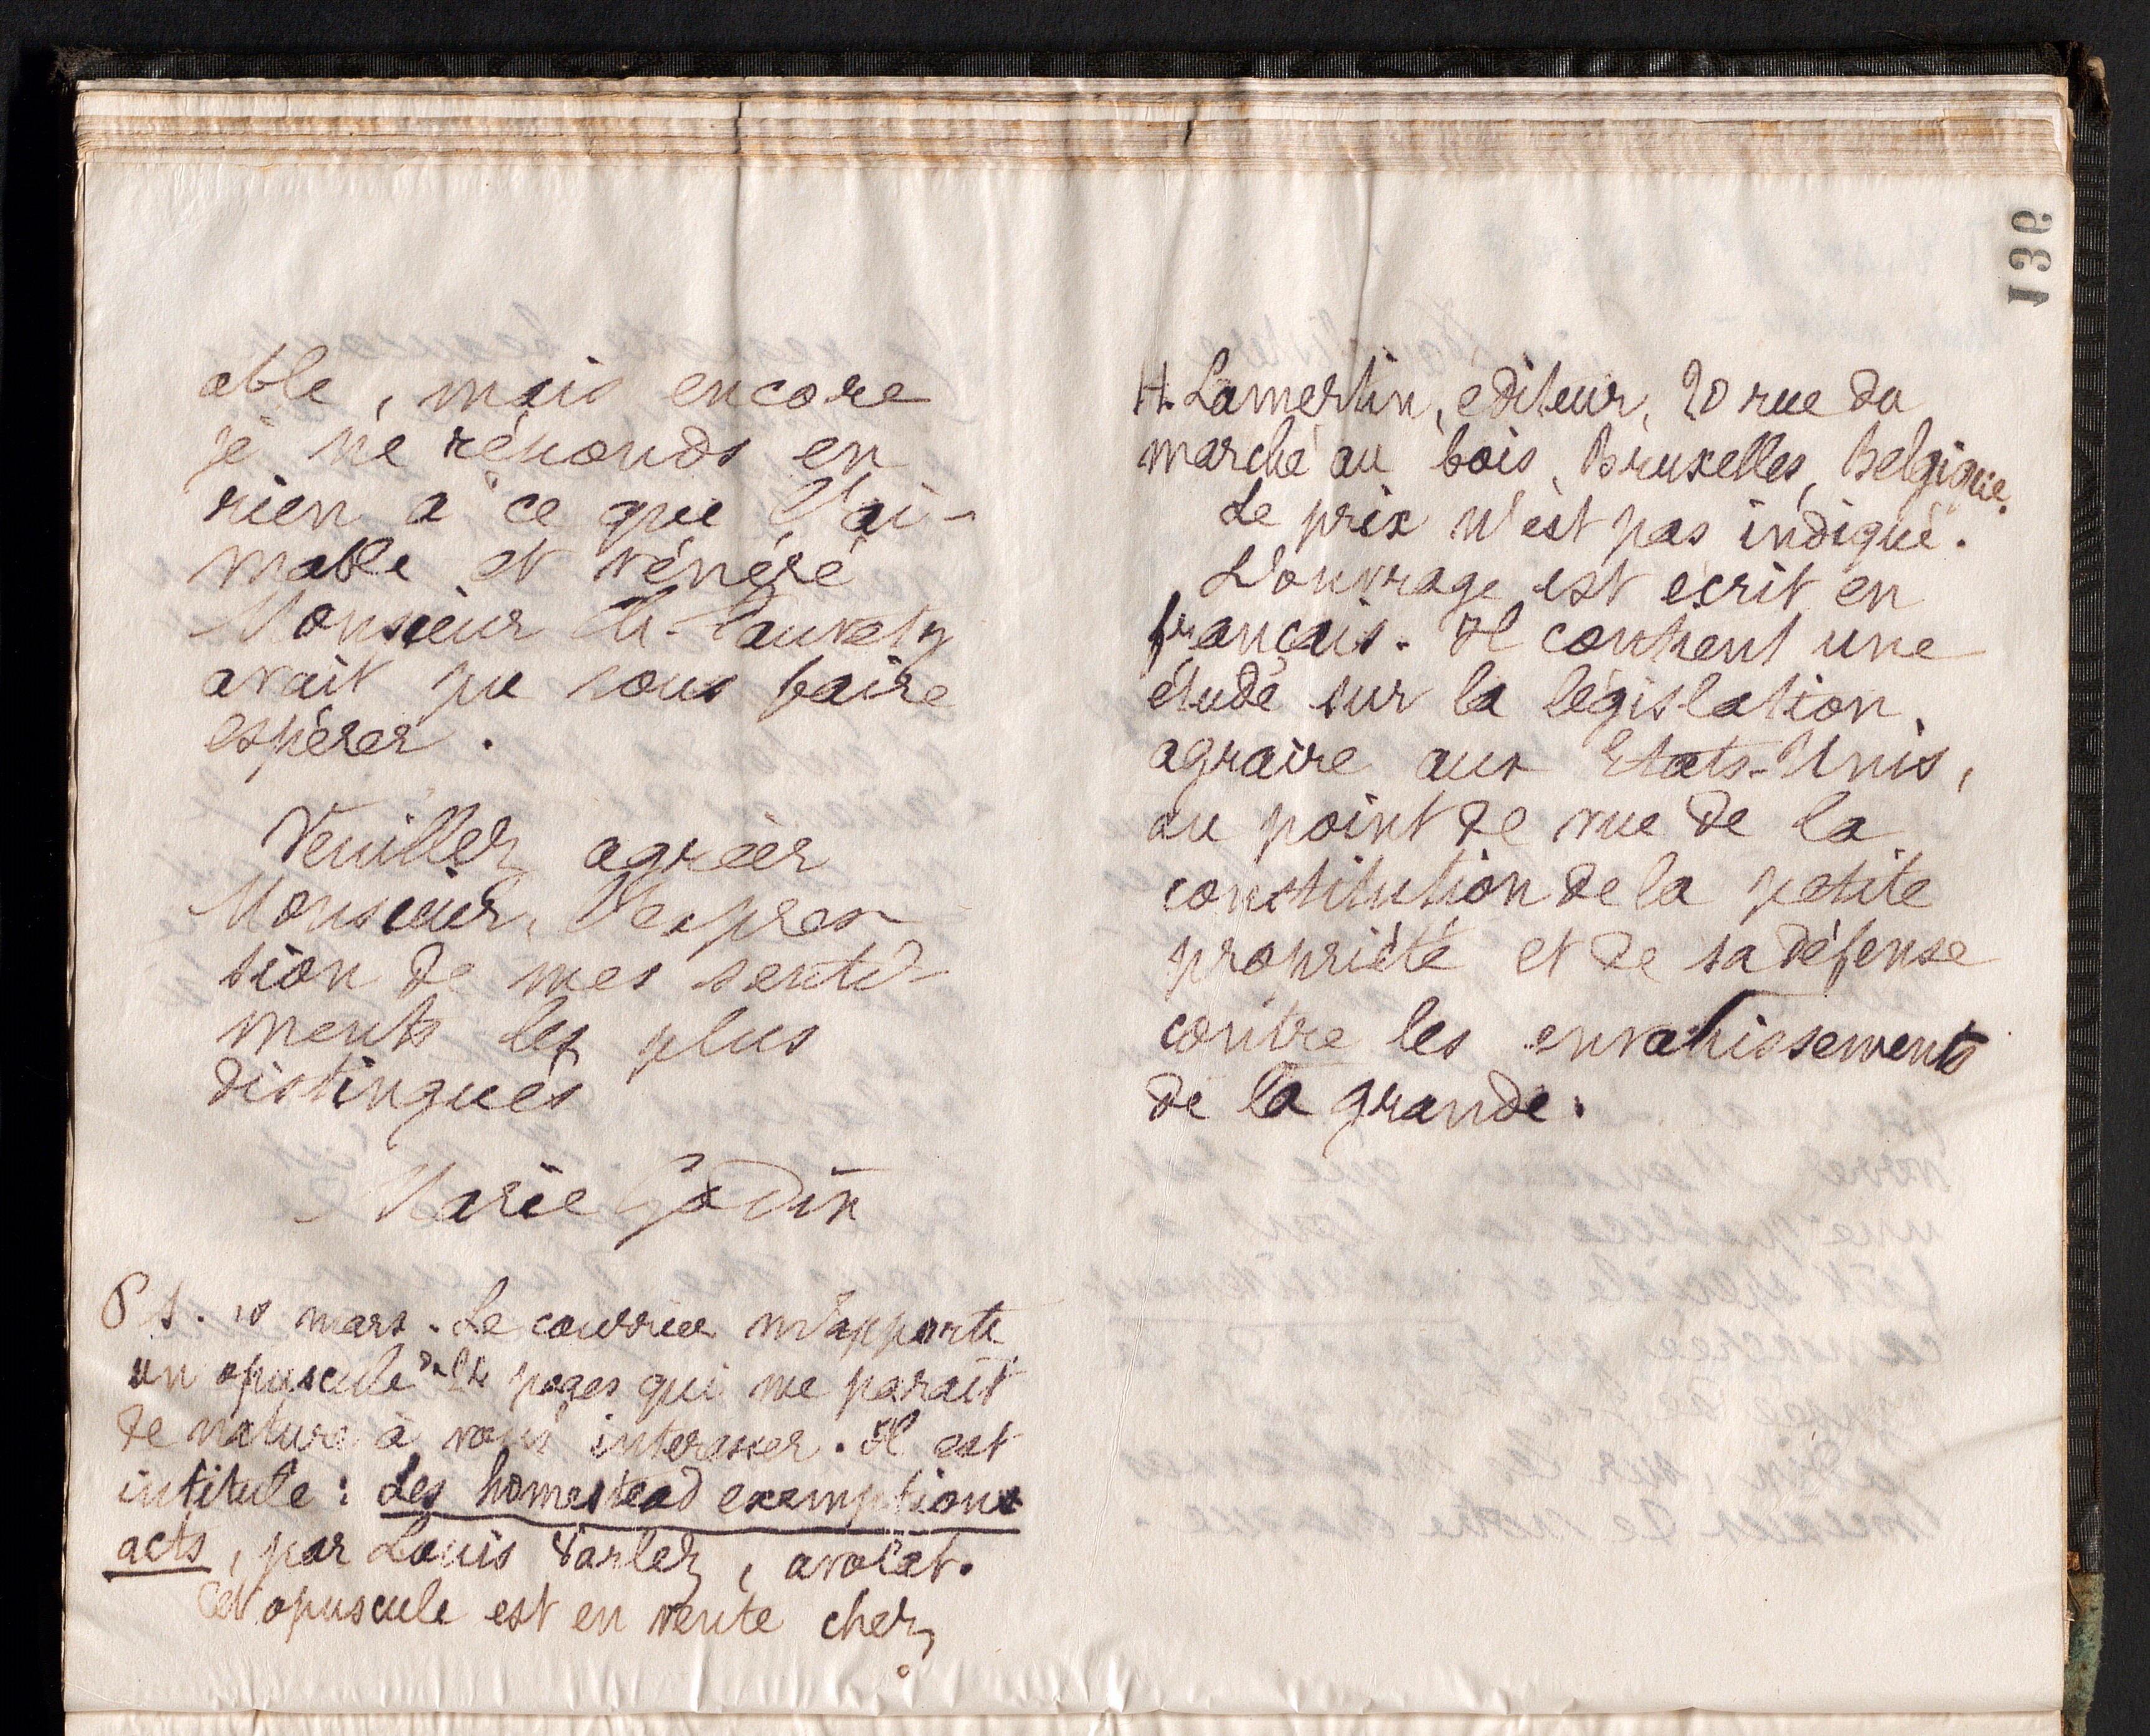 able, mais encore
je ne réponds en
rien à ce que l'ai-
mable et vénéré
Monsieur Ch. Fauvety
avait pu vous faire
espérer.
Veuillez agréer
Monsieur, l'expres-
sion de mes senti-
ments les plus
distingués
Marie Godin
P S. 10 mars. Le courrier m'apporte
un opuscule de pages qui me parait
de nature à vous interesser. Il est
intitulé : Les homestead exemptions
acts, par Louis Varlez, avocat.
Cet opuscule est en vente chez
136
H. Lamertin, editeur, 20 rue du
marché au bois, Bruxelles, Belgique.
Le prix n'est pas indiqué.
L'ouvrage est écrit en
français. Il contient une
étude sur la législation
agraire aux Etats-Unis,
au point de vue de la
constitution de la petite
propriété et de sa défense
contre les envahissements
de la grande.